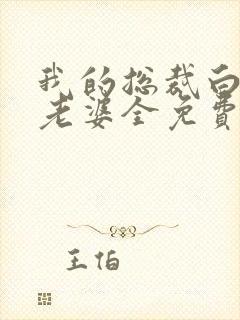 我的总裁白
老婆全免费
王伯